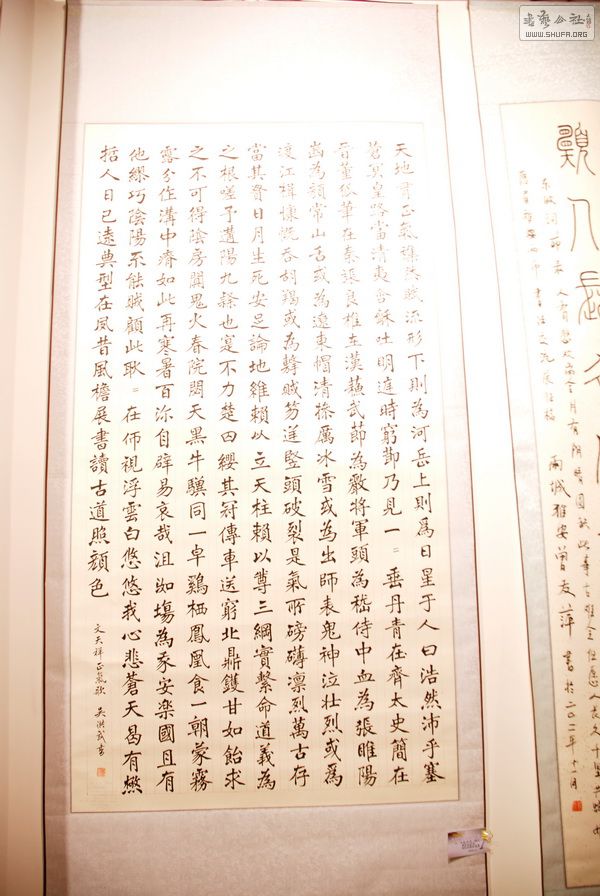 書藝公社
WWW.SHUFA.ORG
天地有正氣雜然賦流形下則為河岳上則為日星于人曰浩然沛乎塞
蒼冥皇路當清夷含龢吐明庭時窮節乃見一=垂丹青在齊太史簡在
晉董狐筆在秦張良椎在漢蘇武節為嚴將軍頭為嵇侍中血為張睢陽
齒為顏常山舌或為遼東帽清操厲冰雪或為出師表鬼神泣壯烈或為
渡江楫慷慨吞胡羯或為擊賊笏逆豎頭破裂是氣所磅礴凛烈萬古存
當其貫日月生死安足論地維賴以立天柱賴以尊三綱實繫命道義為
之根嗟予遘陽九隸也寔不力楚囚纓其冠傳車送窮北鼎鑊甘如飴求
之不可得陰房闐鬼火春院閟天黑牛驥同一皁鷄栖鳳凰食一朝蒙霧
露分作溝中瘠如此再寒暑百沴自辟易哀哉沮洳場為我安樂國且有
他繆巧陰陽不能賊顧此耿=在仰視浮雲白悠悠我心悲蒼天曷有極
哲人日已遠典型在夙昔風檐展書讀古道照顏色
文天祥正氣歌 吴洪武書
雨城雅安曾友萍書於二〇一二年十一月